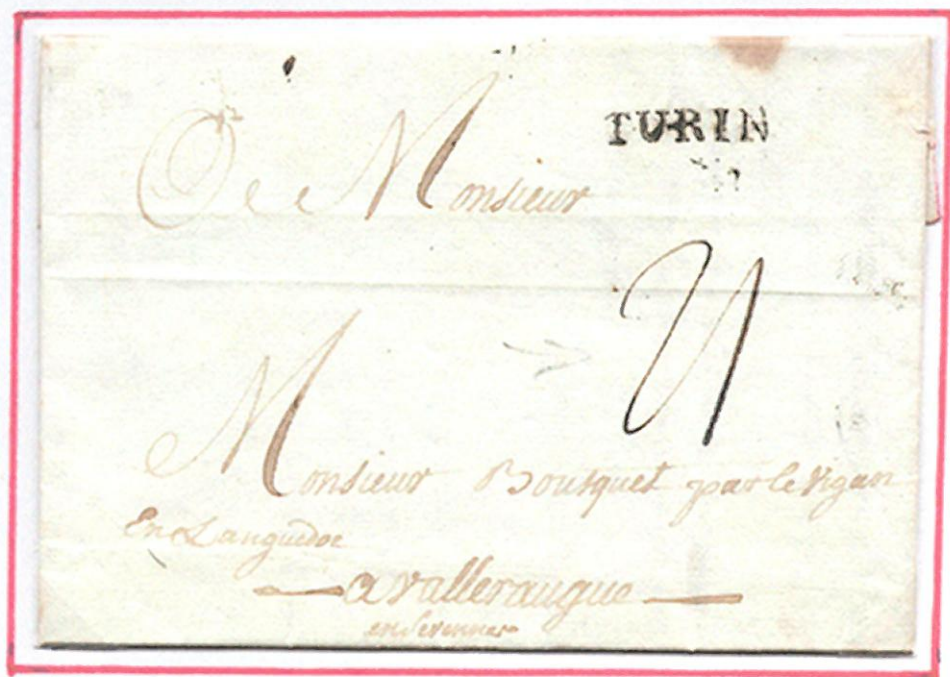 TURIN
De Monsieur
21
Monsieur Bousquet par le Vigan
En Languedoc
a valleraugue
en sevennes